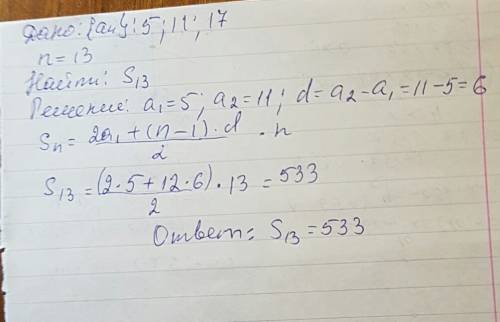 Дано: {an}: 5; 11; 17
n = 13
Найти: S13
Решение: a1 = 5; a2 = 11; d = a2 - a1 = 11 - 5 = 6
Sn = (2a1 + (n - 1) · d)/2 · n
S13 = (2 · 5 + 12 · 6)/2 · 13 = 533
Ответ: S13 = 533